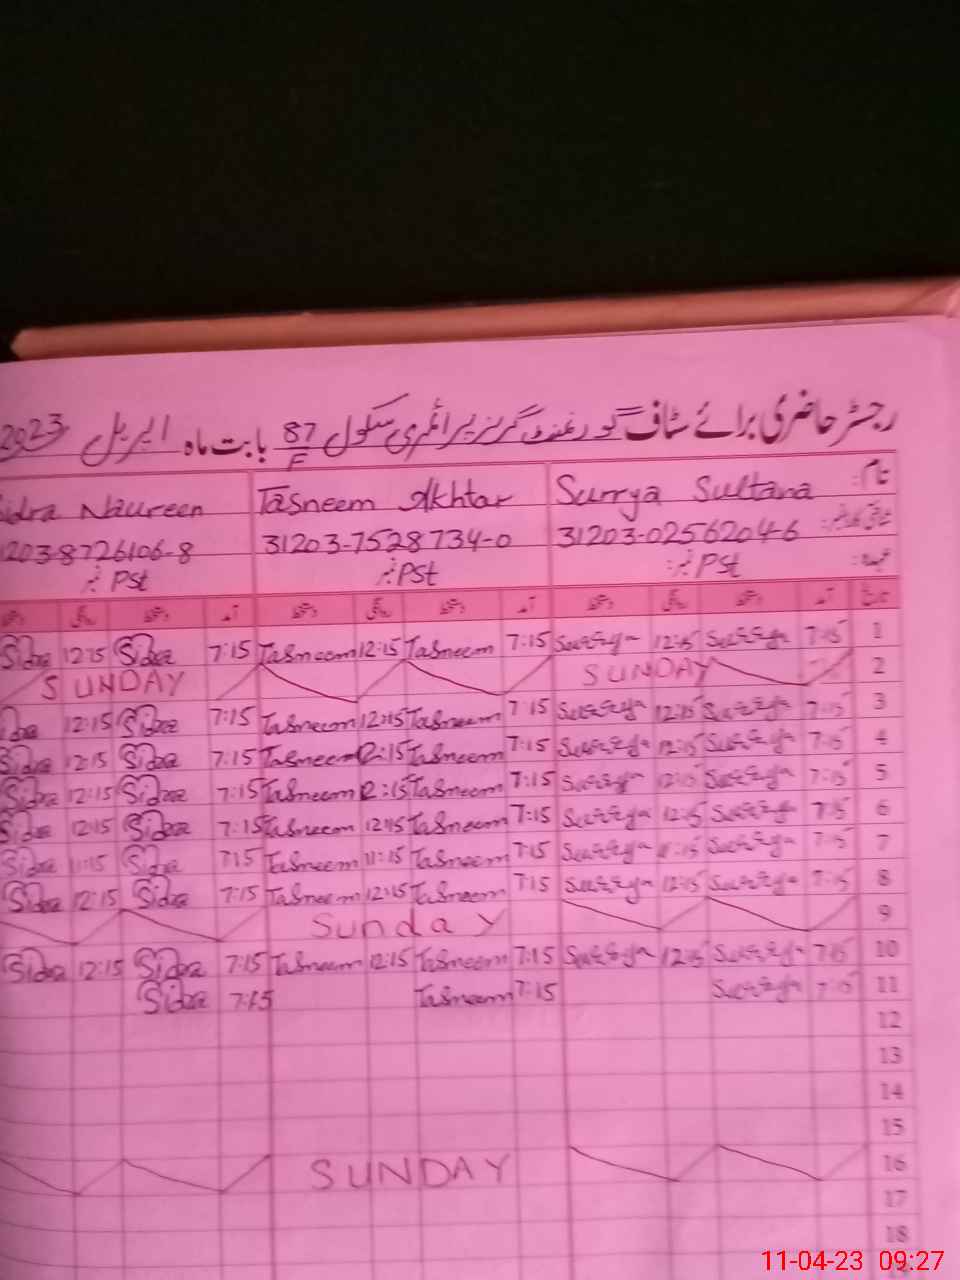 رجسٹر حاضری برائے سٹاف گورنمنٹ گرلز پرائمری سکول 87/F بابت ماہ اپریل 2023
نام: Surrya Sultana Tasneem Akhtar Sidra Naureen
31203-0256204-6 31203-7528734-0 1203-8726106-8
Pst Pst Pst
Sidra 12:15 Sidra 7:15 Tasneem 12:15 Tasneem 7:15 Surrya 12:15 Surrya 7:15 1
SUNDAY SUNDAY 2
12:15 Sidra 7:15 Tasneem 12:15 Tasneem 7:15 Surrya 12:15 Surrya 7:15 3
Sidra 12:15 Sidra 7:15 Tasneem 12:15 Tasneem 7:15 Surrya 12:15 Surrya 7:15 4
Sidra 12:15 Sidra 7:15 Tasneem 12:15 Tasneem 7:15 Surrya 12:15 Surrya 7:15 5
Sidra 12:15 Sidra 7:15 Tasneem 12:15 Tasneem 7:15 Surrya 12:15 Surrya 7:15 6
Sidra 11:15 Sidra 7:15 Tasneem 11:15 Tasneem 7:15 Surrya 11:15 Surrya 7:15 7
Sidra 12:15 Sidra 7:15 Tasneem 12:15 Tasneem 7:15 Surrya 12:15 Surrya 7:15 8
Sunday 9
Sidra 12:15 Sidra 7:15 Tasneem 12:15 Tasneem 7:15 Surrya 12:15 Surrya 7:15 10
Sidra 7:15 Tasneem 7:15 Surrya 7:15 11
12
13
14
15
SUNDAY 16
17
18
11-04-23 09:27